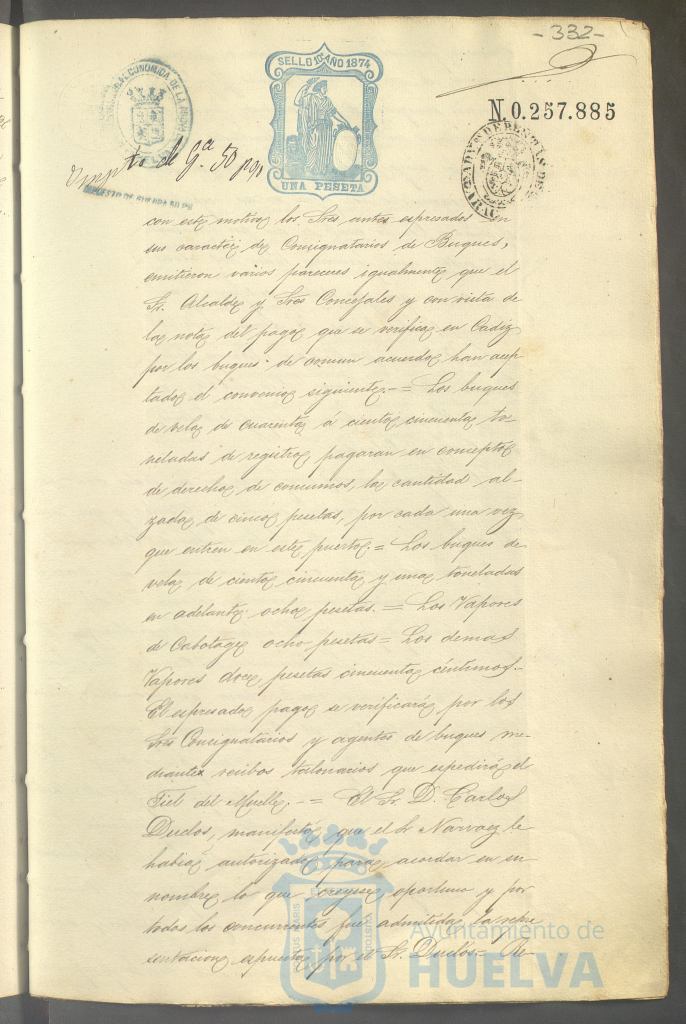 -332-
SELLO 10º AÑO 1874
UNA PESETA
N. 0.257.885
Impto de Gª 50 p%
con este motivo los Sres antes espresados en
su caracter de Consignatarios de Buques,
emitieron varios pareceres igualmente que el
Sr. Alcalde y Sres Concejales y con vista de
la nota del pago que se verifica en Cadiz
por los buques de comun acuerdo han aup-
tado el convenio siguiente.= Los buques
de vela de cuarenta á ciento cincuenta to-
neladas de registro, pagaran en concepto
de derecho de consumos, la cantidad al-
zada de cinco pesetas, por cada una vez
que entren en este puerto.= Los buques de
vela de ciento cincuenta y una toneladas
en adelante ocho pesetas.= Los Vapores
de Cabotage ocho pesetas= Los demas
Vapores doce pesetas cincuenta céntimos.-
El espresado pago se verificará por los
Sres Consignatarios y agentes de buques me-
diante recibos talonarios que espedirá el
Fiel del Muelle.-= El Sr. D. Carlos
Duclos, manifestó que el Sr Narvaez le
habia autorizado para acordar en su
nombre lo que creyese oportuno y por
todos los concurrentes fué admitida la repre
sentacion espuesta por el Sr. Duclos.= Re-
Ayuntamiento de
HUELVA